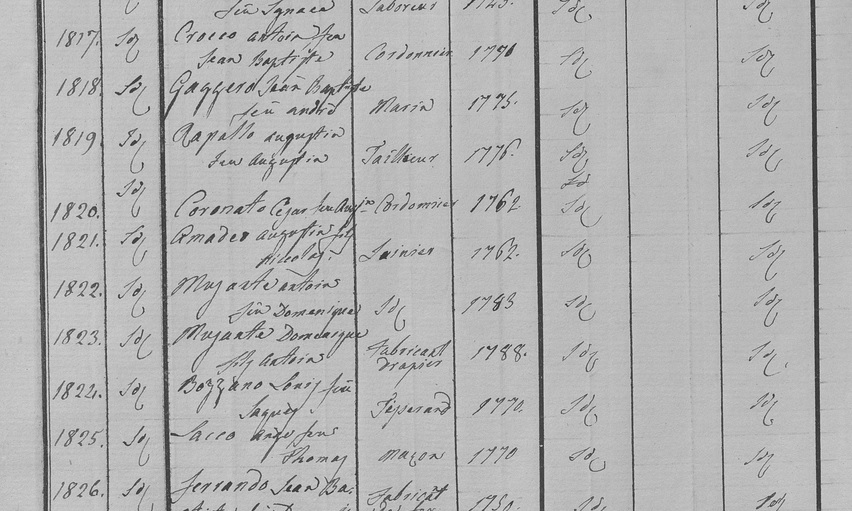 feu Ignace Laboreur 1745. Id Id
1817. Id Crocco antoin feu
Jean Baptiste Cordonnier 1790 Id Id
1818. Id Gaggero Jean Baptiste
feu andré Marin 1775. Id Id
1819. Id Rapallo augustin
feu augustin Tailleur 1776. Id Id
Id Id
1820. Coronato Cezar feu Cordonnier 1762 Id Id
1821. Id Amadeo augustin fils
nicolas. Lainier 1762. Id Id
1822. Id antoin
feu Domenique Id 1783 Id Id
1823. Id Domenique
fils Antoin Fabricant
drapier 1788. Id Id
1824. Id Bozzano Louis feu
Jaques 1770. Id Id
1825. Id Sacco ange feu
Thomas maçon 1770 Id Id
1826. Id ferrando Jean Ba=
Fabricāt 1750. Id Id